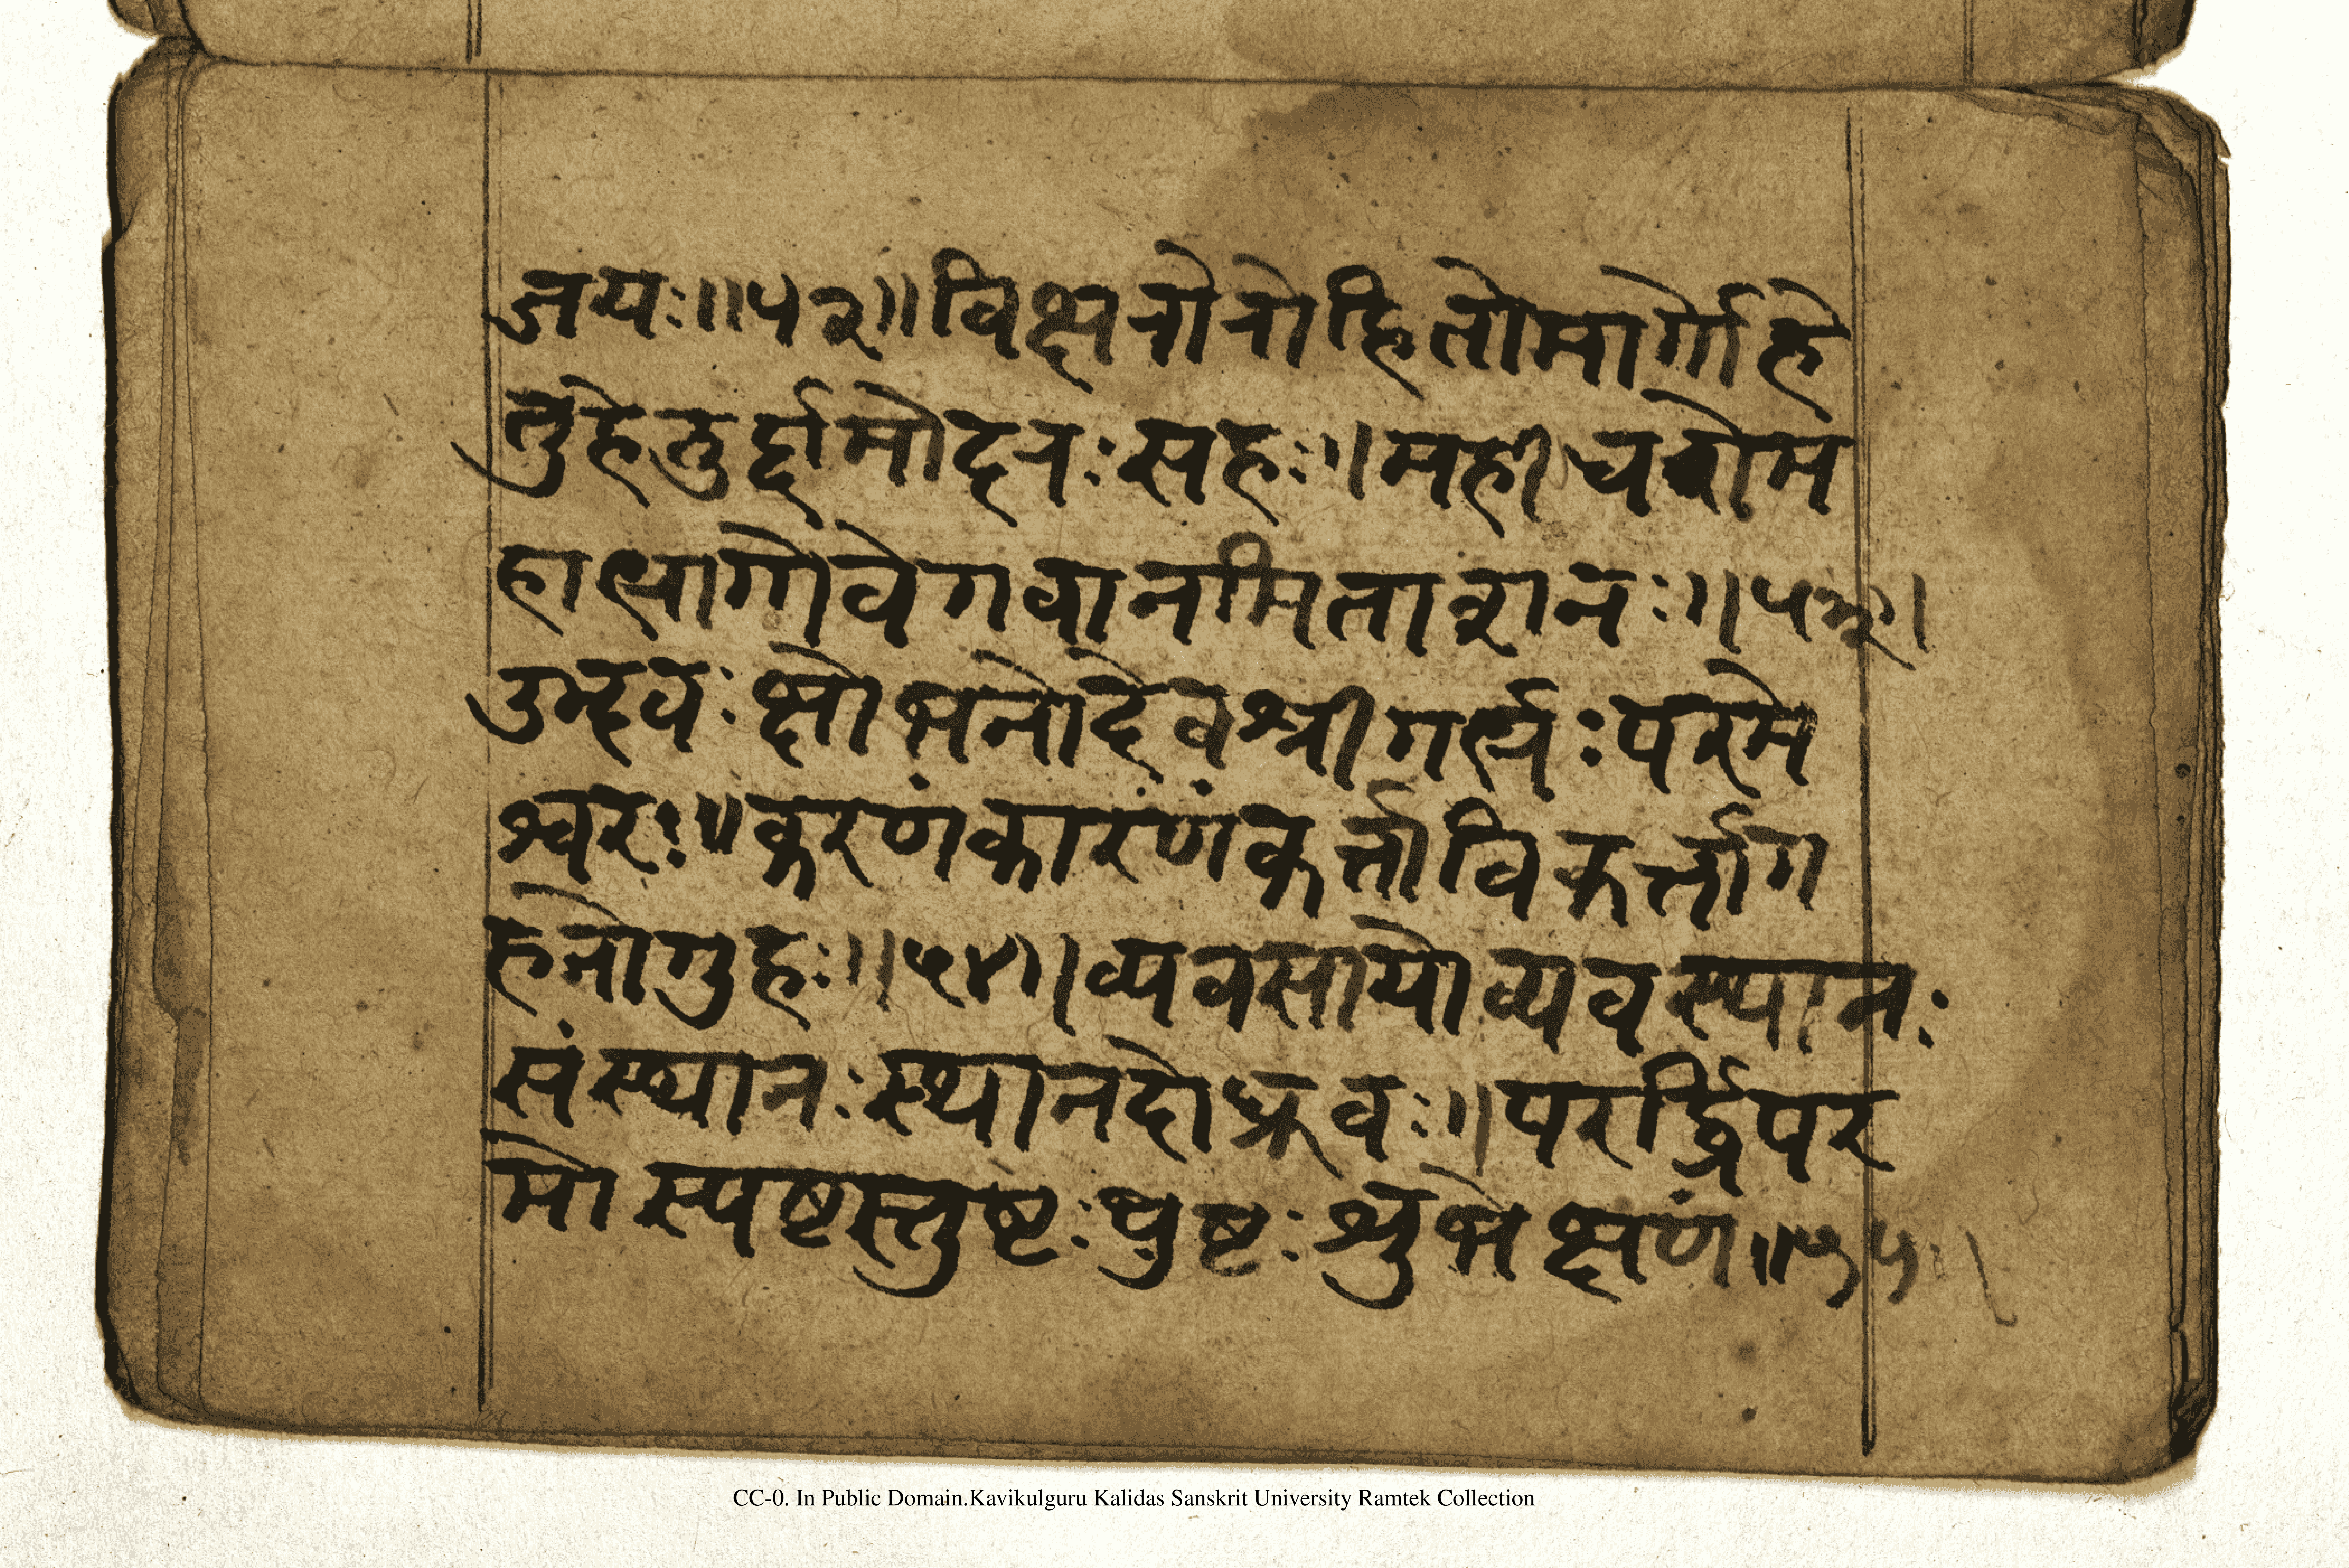 जयः॥५२॥विक्षरोरोहितोमार्गोहे
तुहेतुर्द्दामोदरःसहः॥महीधरोम
हाभागोवेगवानमिताशनः॥५३॥
उद्भवःक्षोभनोदेवश्रीगर्भ्भःपरमे
श्वरः॥करणंकारंणंकर्त्ताविकर्त्ताग
हनोगुहः॥५४॥व्यवसायोव्यवस्थानः
संस्थानःस्थानदोध्रुवः॥परर्द्धिपर
मोस्पष्टस्तुष्टःपुष्टःश्रुभेक्षणं॥५५
CC-0. In Public Domain.Kavikulguru Kalidas Sanskrit University Ramtek Collection